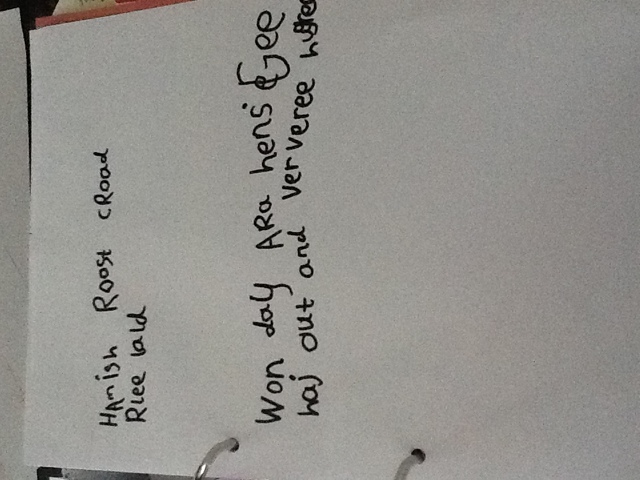 HAmish Roost cRoad
Rlee lald
Won day ARa hens Gee
haj out and ververee